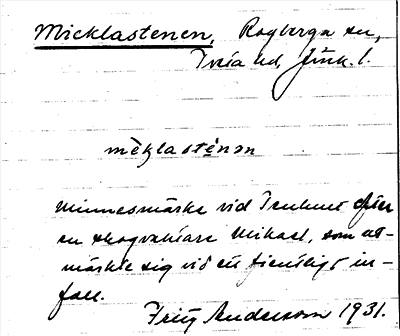 Micklastenen, Rogberga sn,
Tveta hd, Jönk. l.
mèklasténan
Minnesmärke vid Tenhult efter
en skogvaktare Mikael, som ut-
märkte sig vid ett fientligt in-
fall.
Fritz Anderson 1931.